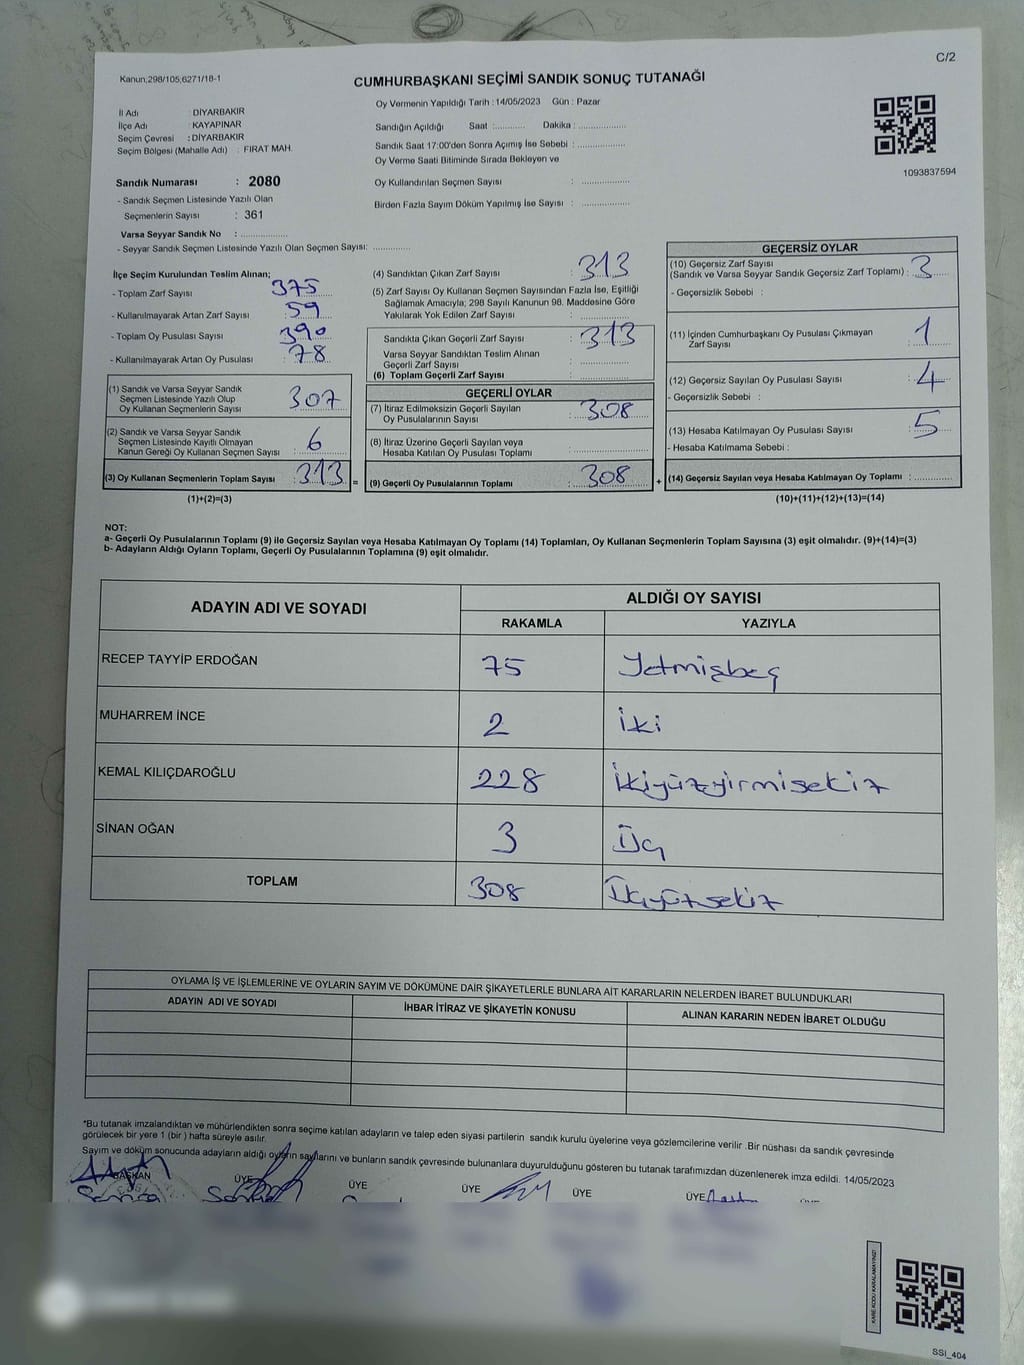 C/2
Kanun;298/105;6271/18-1
CUMHURBAŞKANI SEÇİMİ SANDIK SONUÇ TUTANAĞI
İl Adı : DİYARBAKIR
İlçe Adı : KAYAPINAR
Seçim Çevresi : DİYARBAKIR
Seçim Bölgesi (Mahalle Adı) : FIRAT MAH.
Oy Vermenin Yapıldığı Tarih : 14/05/2023 Gün : Pazar
Sandığın Açıldığı Saat :........... Dakika : ................
Sandık Saat 17:00'den Sonra Açımış İse Sebebi : ................
Oy Verme Saati Bitiminde Sırada Bekleyen ve
Oy Kullandırılan Seçmen Sayısı : ................
Birden Fazla Sayım Döküm Yapılmış İse Sayısı : ................
1093837594
Sandık Numarası : 2080
- Sandık Seçmen Listesinde Yazılı Olan
Seçmenlerin Sayısı : 361
Varsa Seyyar Sandık No : ................
- Seyyar Sandık Seçmen Listesinde Yazılı Olan Seçmen Sayısı: ............
İlçe Seçim Kurulundan Teslim Alınan;
- Toplam Zarf Sayısı 375
- Kullanılmayarak Artan Zarf Sayısı : 59
- Toplam Oy Pusulası Sayısı : 390
- Kullanılmayarak Artan Oy Pusulası : 78
(1) Sandık ve Varsa Seyyar Sandık
Seçmen Listesinde Yazılı Olup
Oy Kullanan Seçmenlerin Sayısı : 307
(2) Sandık ve Varsa Seyyar Sandık
Seçmen Listesinde Kayıtlı Olmayan
Kanun Gereği Oy Kullanan Seçmen Sayısı : 6
(3) Oy Kullanan Seçmenlerin Toplam Sayısı : 313 =
(1)+(2)=(3)
(4) Sandıktan Çıkan Zarf Sayısı : 313
(5) Zarf Sayısı Oy Kullanan Seçmen Sayısından Fazla İse, Eşitliği
Sağlamak Amacıyla; 298 Sayılı Kanunun 98. Maddesine Göre
Yakılarak Yok Edilen Zarf Sayısı : ................
Sandıkta Çıkan Geçerli Zarf Sayısı : 313
Varsa Seyyar Sandıktan Teslim Alınan
Geçerli Zarf Sayısı :
(6) Toplam Geçerli Zarf Sayısı :
GEÇERLİ OYLAR
(7) İtiraz Edilmeksizin Geçerli Sayılan
Oy Pusulalarının Sayısı : 308
(8) İtiraz Üzerine Geçerli Sayılan veya
Hesaba Katılan Oy Pusulası Toplamı :
(9) Geçerli Oy Pusulalarının Toplamı : 308 +
GEÇERSİZ OYLAR
(10) Geçersiz Zarf Sayısı
(Sandık ve Varsa Seyyar Sandık Geçersiz Zarf Toplamı) : 3
- Geçersizlik Sebebi :
(11) İçinden Cumhurbaşkanı Oy Pusulası Çıkmayan
Zarf Sayısı : 1
(12) Geçersiz Sayılan Oy Pusulası Sayısı : 4
- Geçersizlik Sebebi :
(13) Hesaba Katılmayan Oy Pusulası Sayısı : 5
- Hesaba Katılmama Sebebi :
(14) Geçersiz Sayılan veya Hesaba Katılmayan Oy Toplamı : ............
(10)+(11)+(12)+(13)=(14)
NOT:
a- Geçerli Oy Pusulalarının Toplamı (9) ile Geçersiz Sayılan veya Hesaba Katılmayan Oy Toplamı (14) Toplamları, Oy Kullanan Seçmenlerin Toplam Sayısına (3) eşit olmalıdır. (9)+(14)=(3)
b- Adayların Aldığı Oyların Toplamı, Geçerli Oy Pusulalarının Toplamına (9) eşit olmalıdır.
ADAYIN ADI VE SOYADI ALDIĞI OY SAYISI
RAKAMLA YAZIYLA
RECEP TAYYİP ERDOĞAN 75 Yetmişbeş
MUHARREM İNCE 2 İki
KEMAL KILIÇDAROĞLU 228 İkiyüzyirmisekiz
SİNAN OĞAN 3 Üç
TOPLAM 308 Üçyüzsekiz
OYLAMA İŞ VE İŞLEMLERİNE VE OYLARIN SAYIM VE DÖKÜMÜNE DAİR ŞİKAYETLERLE BUNLARA AİT KARARLARIN NELERDEN İBARET BULUNDUKLARI
ADAYIN ADI VE SOYADI İHBAR İTİRAZ VE ŞİKAYETİN KONUSU ALINAN KARARIN NEDEN İBARET OLDUĞU
*Bu tutanak imzalandıktan ve mühürlendikten sonra seçime katılan adayların ve talep eden siyasi partilerin sandık kurulu üyelerine veya gözlemcilerine verilir .Bir nüshası da sandık çevresinde
görülecek bir yere 1 (bir ) hafta süreyle asılır.
Sayım ve döküm sonucunda adayların aldığı oyların sayılarını ve bunların sandık çevresinde bulunanlara duyurulduğunu gösteren bu tutanak tarafımızdan düzenlenerek imza edildi. 14/05/2023
BAŞKAN ÜYE ÜYE ÜYE ÜYE ÜYE
KARE KODU KARALAMAYINIZ!
SSI_404